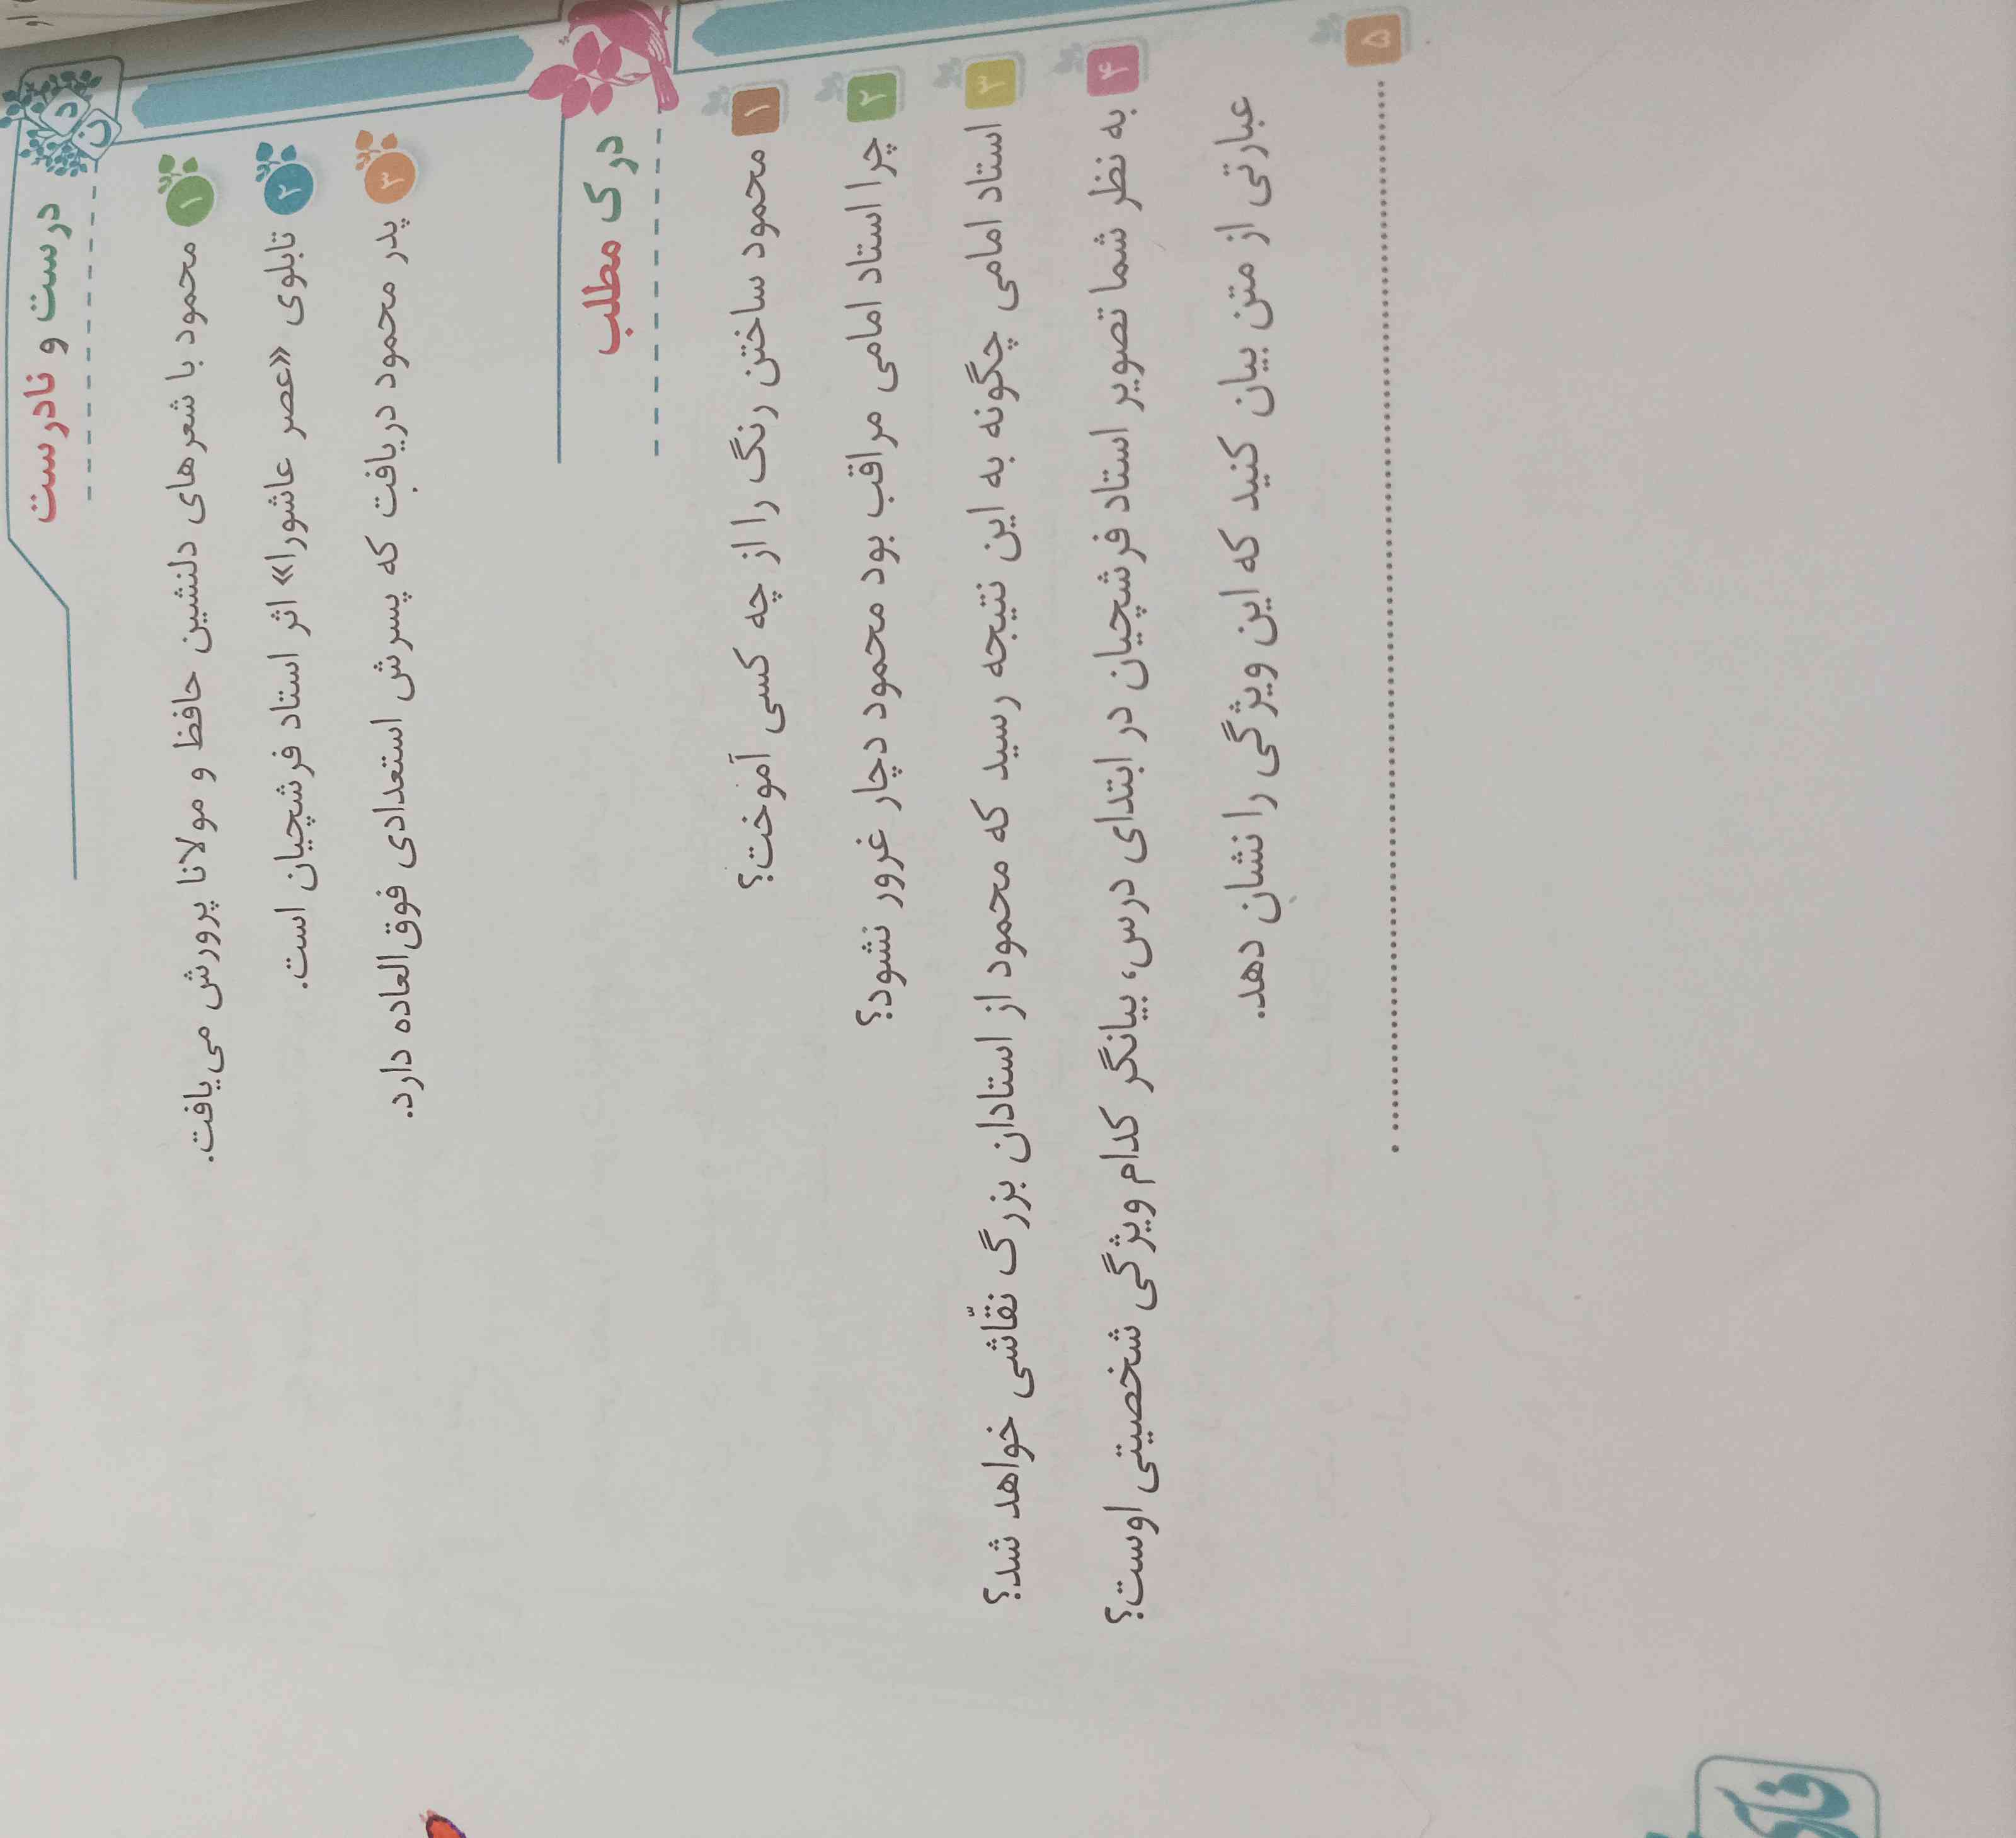 درست و نادرست
۱ محمود با شعرهای دلنشین حافظ و مولانا پرورش می‌یافت.
۲ تابلوی «عصر عاشورا» اثر استاد فرشچیان است.
۳ پدر محمود دریافت که پسرش استعدادی فوق‌العاده دارد.
درک مطلب
۱ محمود ساختن رنگ را از چه کسی آموخت؟
۲ چرا استاد امامی مراقب بود محمود دچار غرور نشود؟
۳ استاد امامی چگونه به این نتیجه رسید که محمود از استادان بزرگ نقّاشی خواهد شد؟
۴ به نظر شما تصویر استاد فرشچیان در ابتدای درس، بیانگر کدام ویژگی شخصیتی اوست؟
عبارتی از متن بیان کنید که این ویژگی را نشان دهد.
۵ ........................................................